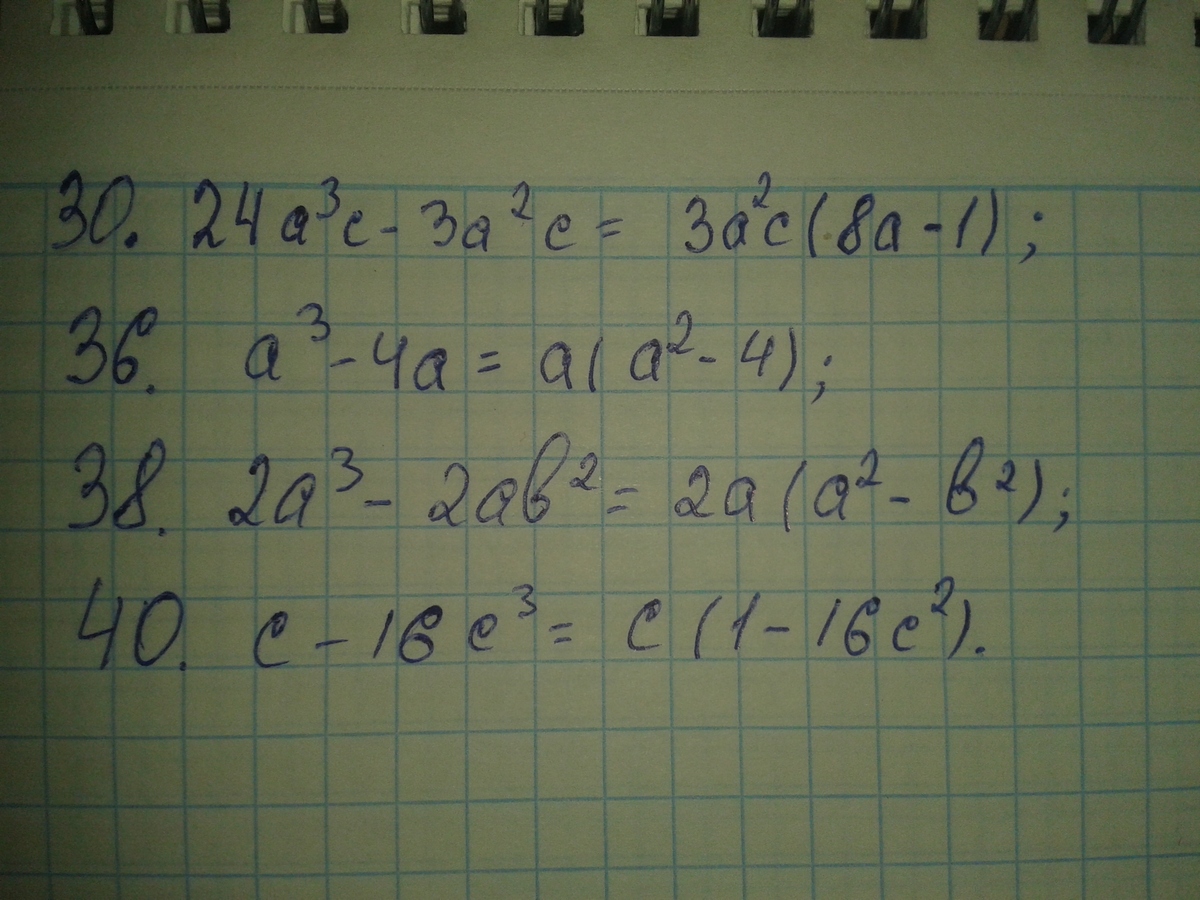 30. 24a³c - 3a²c = 3a²c(8a - 1);
36. a³ - 4a = a(a² - 4);
38. 2a³ - 2ab² = 2a(a² - b²);
40. c - 16c³ = c(1 - 16c²).